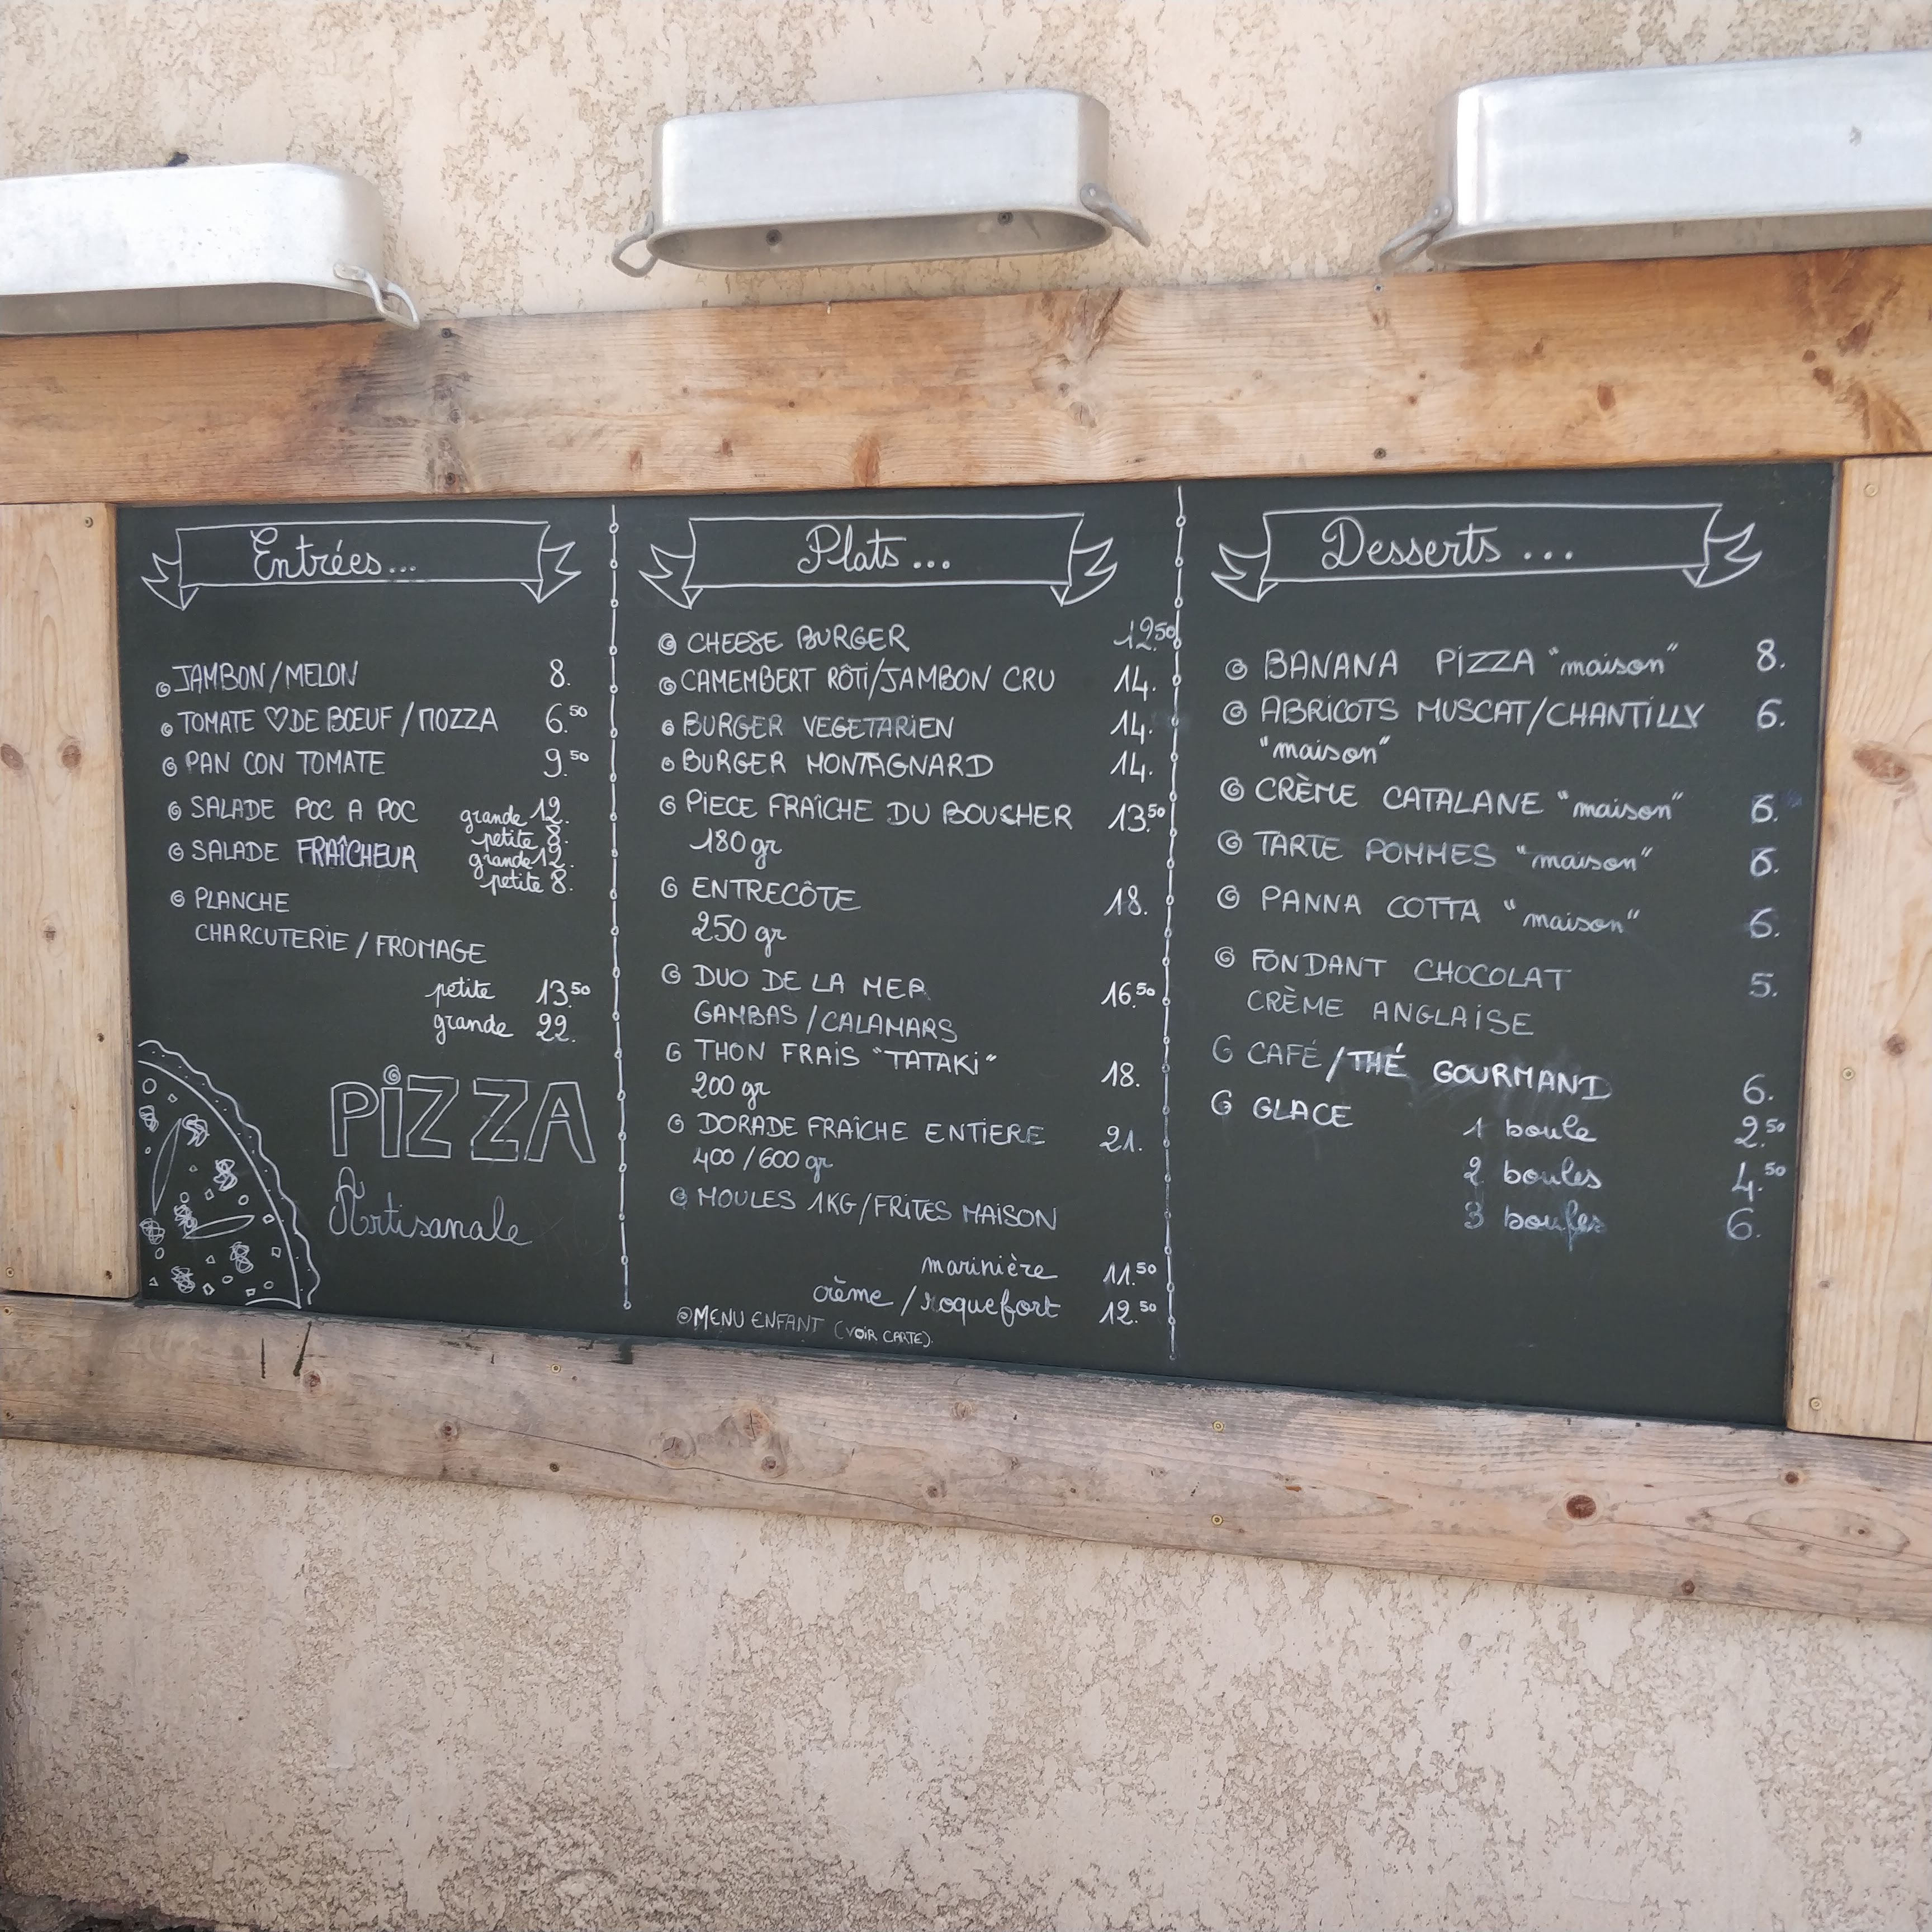 Entrées...
JAMBON/MELON 8.
TOMATE ♡ DE BŒUF/MOZZA 6.50
PAN CON TOMATE 9.50
SALADE POC A POC grande 12.
petite 8.
SALADE FRAÎCHEUR grande 12.
petite 8.
PLANCHE
CHARCUTERIE/FROMAGE
petite 13.50
grande 22.
PiZZA
Artisanale
Plats...
CHEESE BURGER 12.50
CAMEMBERT RÔTi/JAMBON CRU 14.
BURGER VEGETARIEN 14.
BURGER MONTAGNARD 14.
PIECE FRAÎCHE DU BOUCHER 13.50
180 gr
ENTRECÔTE 18.
250 gr
DUO DE LA MER 16.50
GAMBAS/CALAMARS
THON FRAIS "TATAKi" 18.
200 gr
DORADE FRAÎCHE ENTIERE 21.
400/600 gr
MOULES 1KG/FRITES MAISON
marinière 11.50
crème/roquefort 12.50
MENU ENFANT (VOIR CARTE).
Desserts...
BANANA PIZZA "maison" 8.
ABRICOTS MUSCAT/CHANTILLY 6.
"maison"
CRÈME CATALANE "maison" 6.
TARTE POMMES "maison" 6.
PANNA COTTA "maison" 6.
FONDANT CHOCOLAT 5.
CRÈME ANGLAISE
CAFÉ/THÉ GOURMAND 6.
GLACE 1 boule 2.50
2 boules 4.50
3 boules 6.